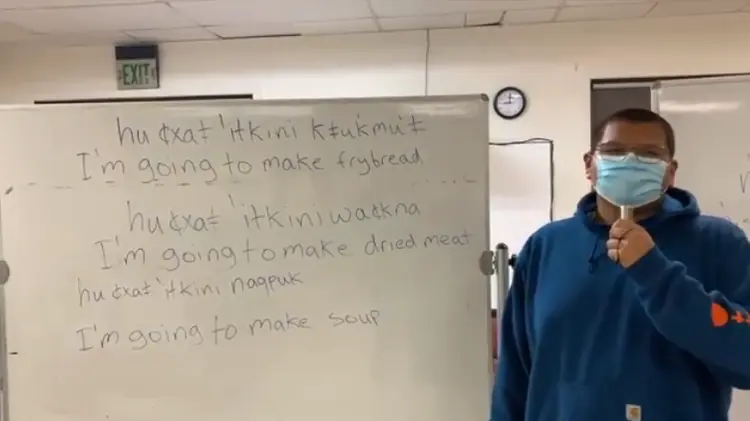 EXIT
hu ȼxaⱡ 'itkini kⱡukmuⱡ
I'm going to make frybread
hu ȼxaⱡ 'itkini waȼkna
I'm going to make dried meat
hu ȼxaⱡ 'itkini naqpuk
I'm going to make soup